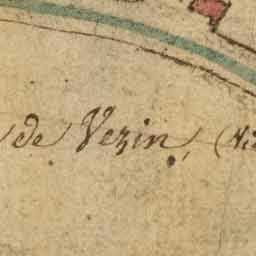 de Vezin, (Vi